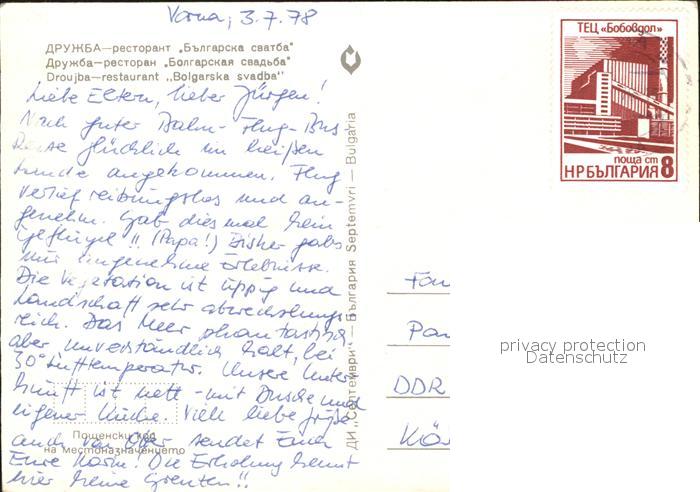 Varna, 3.7.78
ДРУЖБА—ресторант „Българска сватба"
Дружба—ресторан „Болгарская свадьба"
Droujba—restaurant „Bolgarska svadba"
Liebe Eltern, lieber Jürgen!
Nach guter Bahn-Flug-Bus
Reise glücklich im heißen
Lande angekommen. Flug
verlief reibungslos und an-
genehm. Gab diesmal kein
Geflügel!! (Papa!) Bisher gabs
nur angenehme Erlebnisse.
Die Vegetation ist üppig und
Landschaft sehr abwechslungs
reich. Das Meer phantastisch
aber unverständlich kalt, bei
30° Lufttemperatur. Unsere Unter
kunft ist nett - mit Dusche und
eigener Küche. Viele liebe Grüße
auch von sendet Euch
Eure Karin! Die Erholung kennt
hier keine Grenzen!!
Пощенски код
на местоназначението
ДИ „Септември" — България Septemvri — Bulgaria
ТЕЦ «Бобовдол»
поща ст 8
НРБЪЛГАРИЯ
Fam
Pan
DDR
privacy protection
Datenschutz